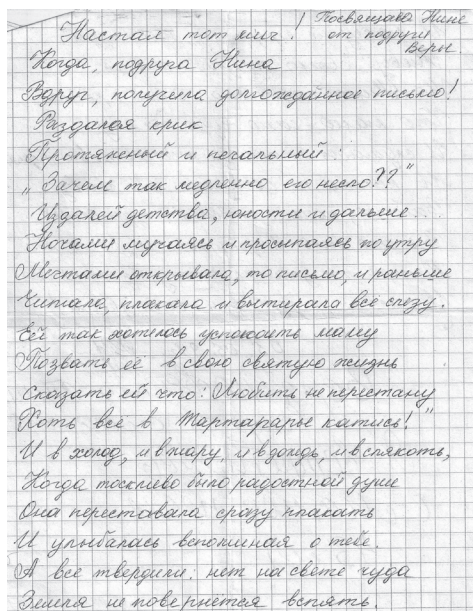 Настал тот миг! Посвящаю Нине
от подруги
Веры.
Когда, подруга Нина
Вдруг, получила долгожданное письмо!
Раздался крик
Протяжный и печальный:
„Зачем так медленно его несло??"
Из далей детства, юности и дальше...
Ночами мучаясь и просыпаясь по утру
Мечтами открывала, то письмо, и раньше
Читала, плакала и вытирала всё слезу.
Ей так хотелось успокоить маму
Позвать её в свою святую жизнь
Сказать ей что: Любить не перестану
Хоть всё в Тартарары катись!"
И в холод, и в жару, и в дождь, и в слякоть,
Когда тоскливо было радостной душе
Она переставала сразу плакать
И улыбалась вспоминая о тебе.
А все твердили: нет на свете чуда
Земля не повернется вспять.